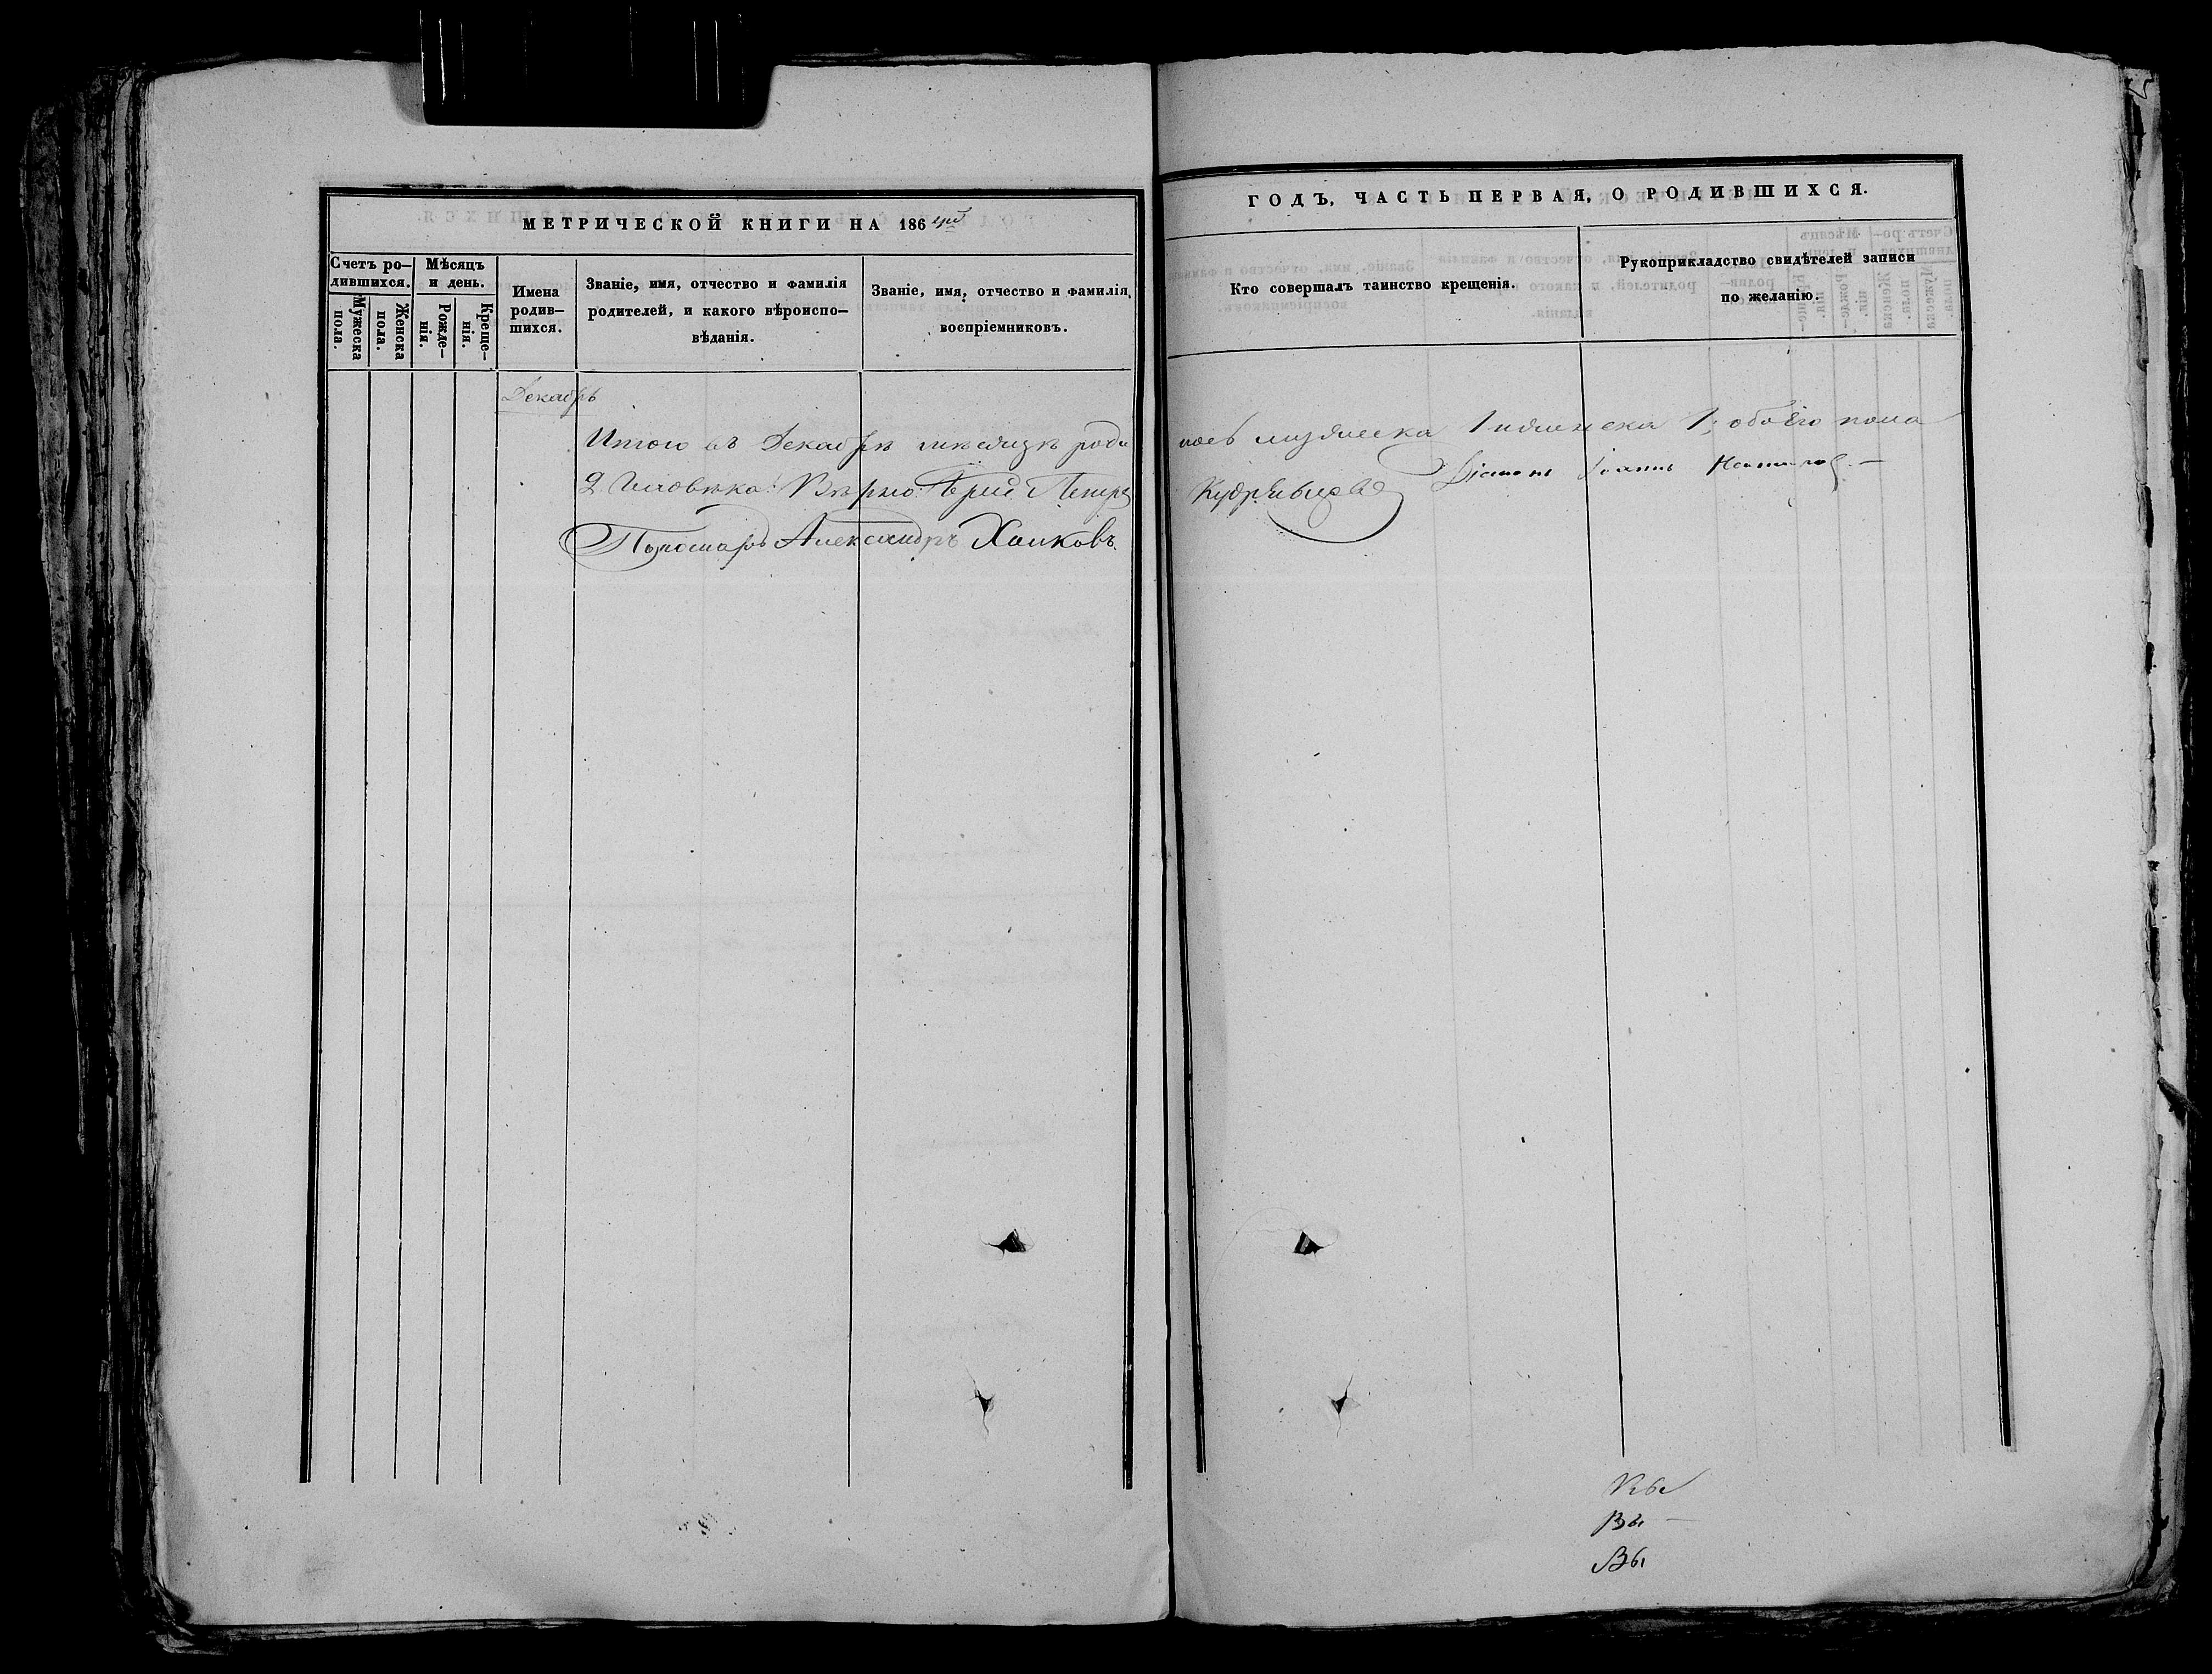 МЕТРИЧЕСКОЙ КНИГИ НА 186
Счетъ ро–
дившихся.
Мужеска
пола.
Женска
пола.
Мѣсяцъ
и день.
Рожде–
нія.
Креще–
нія.
Имена
родив–
шихся.
Званіе, имя, отчество и фамилія
родителей, и какого вѣроиспо–
вѣданія.
Званіе, имя, отчество и фамилія
воспріемниковъ.
Декабрь
Итого въ Декабрѣ мѣсяцѣ роди
2 Человѣка. Вѣрно: Іерей Петръ
Александръ Халковъ.
ГОДЪ, ЧАСТЬ ПЕРВАЯ, О РОДИВШИХСЯ.
Кто совершалъ таинство крещенія.
Рукоприкладство свидѣтелей записи
по желанію.
лось мужеска 1 и женска 1; обоего пола
Кудрявцевъ
Діаконъ Іоаннъ
Вы
Вы